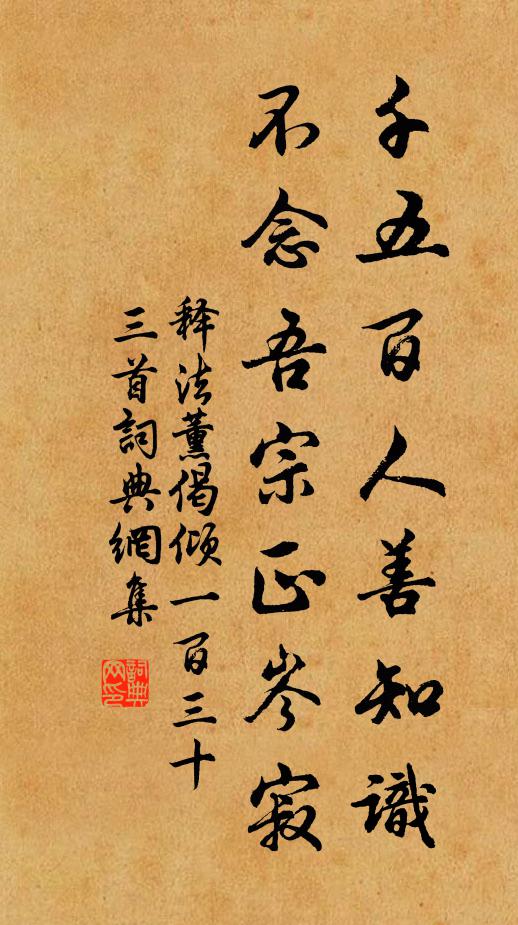 千五百人善知識
不念吾宗正岑寂
释法薰偈倾一百三十
三首詞典網集
詞典
网印